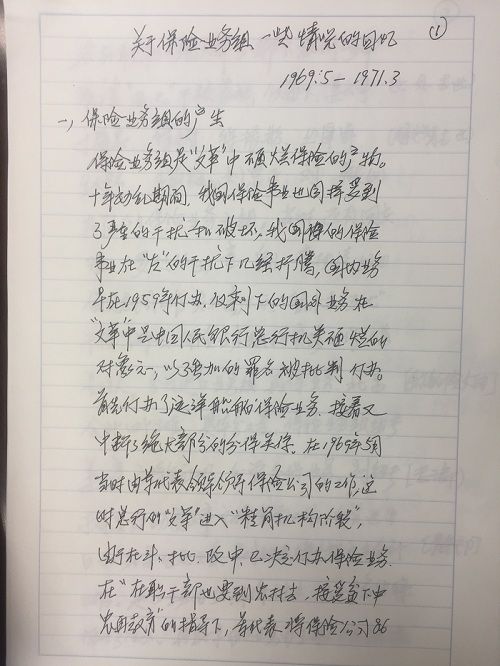 ①
关于保险业务组一些情况的回忆
1969.5—1971.3
一、保险业务组的产生
保险业务组是"文革"中砸烂保险的产物。
十年动乱期间，我国保险事业也同样受到
了严重的干扰和破坏。我国的保险
事业在"左"的干扰下几经折腾，国内业务
早在1959年停办，仅剩下的国外业务在
"文革"中是中国人民银行总行机关砸烂的
对象之一，以强加的罪名被批判停办。
首先停办了远洋船舶保险业务，接着又
中断了绝大部份的分保关系。在1969年5月
当时由军代表领导保险公司的工作，这
时总行的"文革"进入"精简机构阶段"，
由于在斗、批、改中，已决定停办保险业务，
在"在职干部也要到农村去，接受贫下中
农再教育"的指导下，军代表将保险公司86